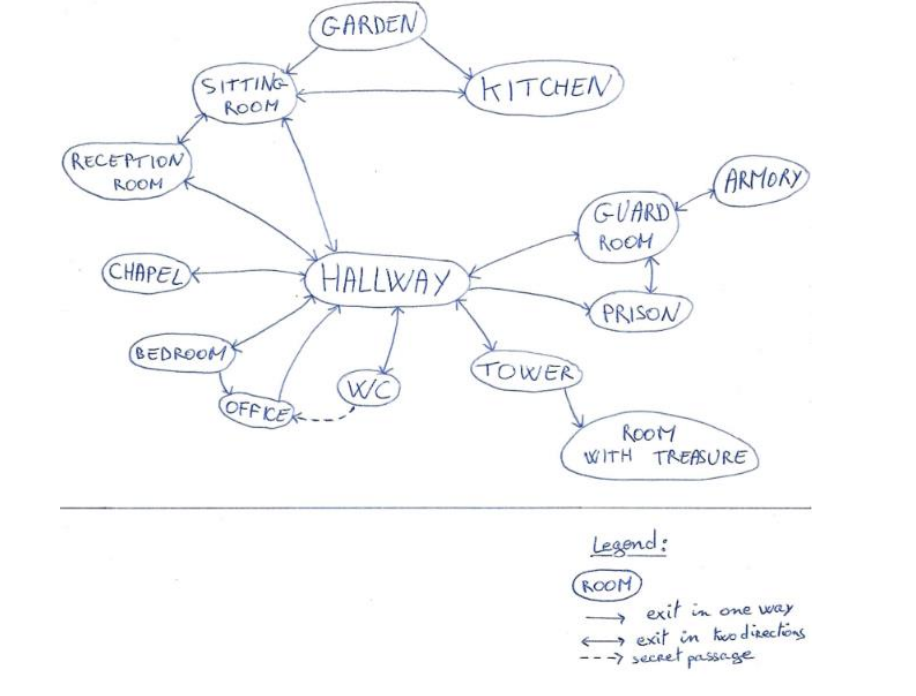 GARDEN
SITTING
ROOM
KITCHEN
RECEPTION
ROOM
ARMORY
GUARD
ROOM
CHAPEL
HALLWAY
PRISON
BEDROOM
WC
TOWER
OFFICE
ROOM
WITH TREASURE
Legend:
ROOM
exit in one way
exit in two directions
secret passage